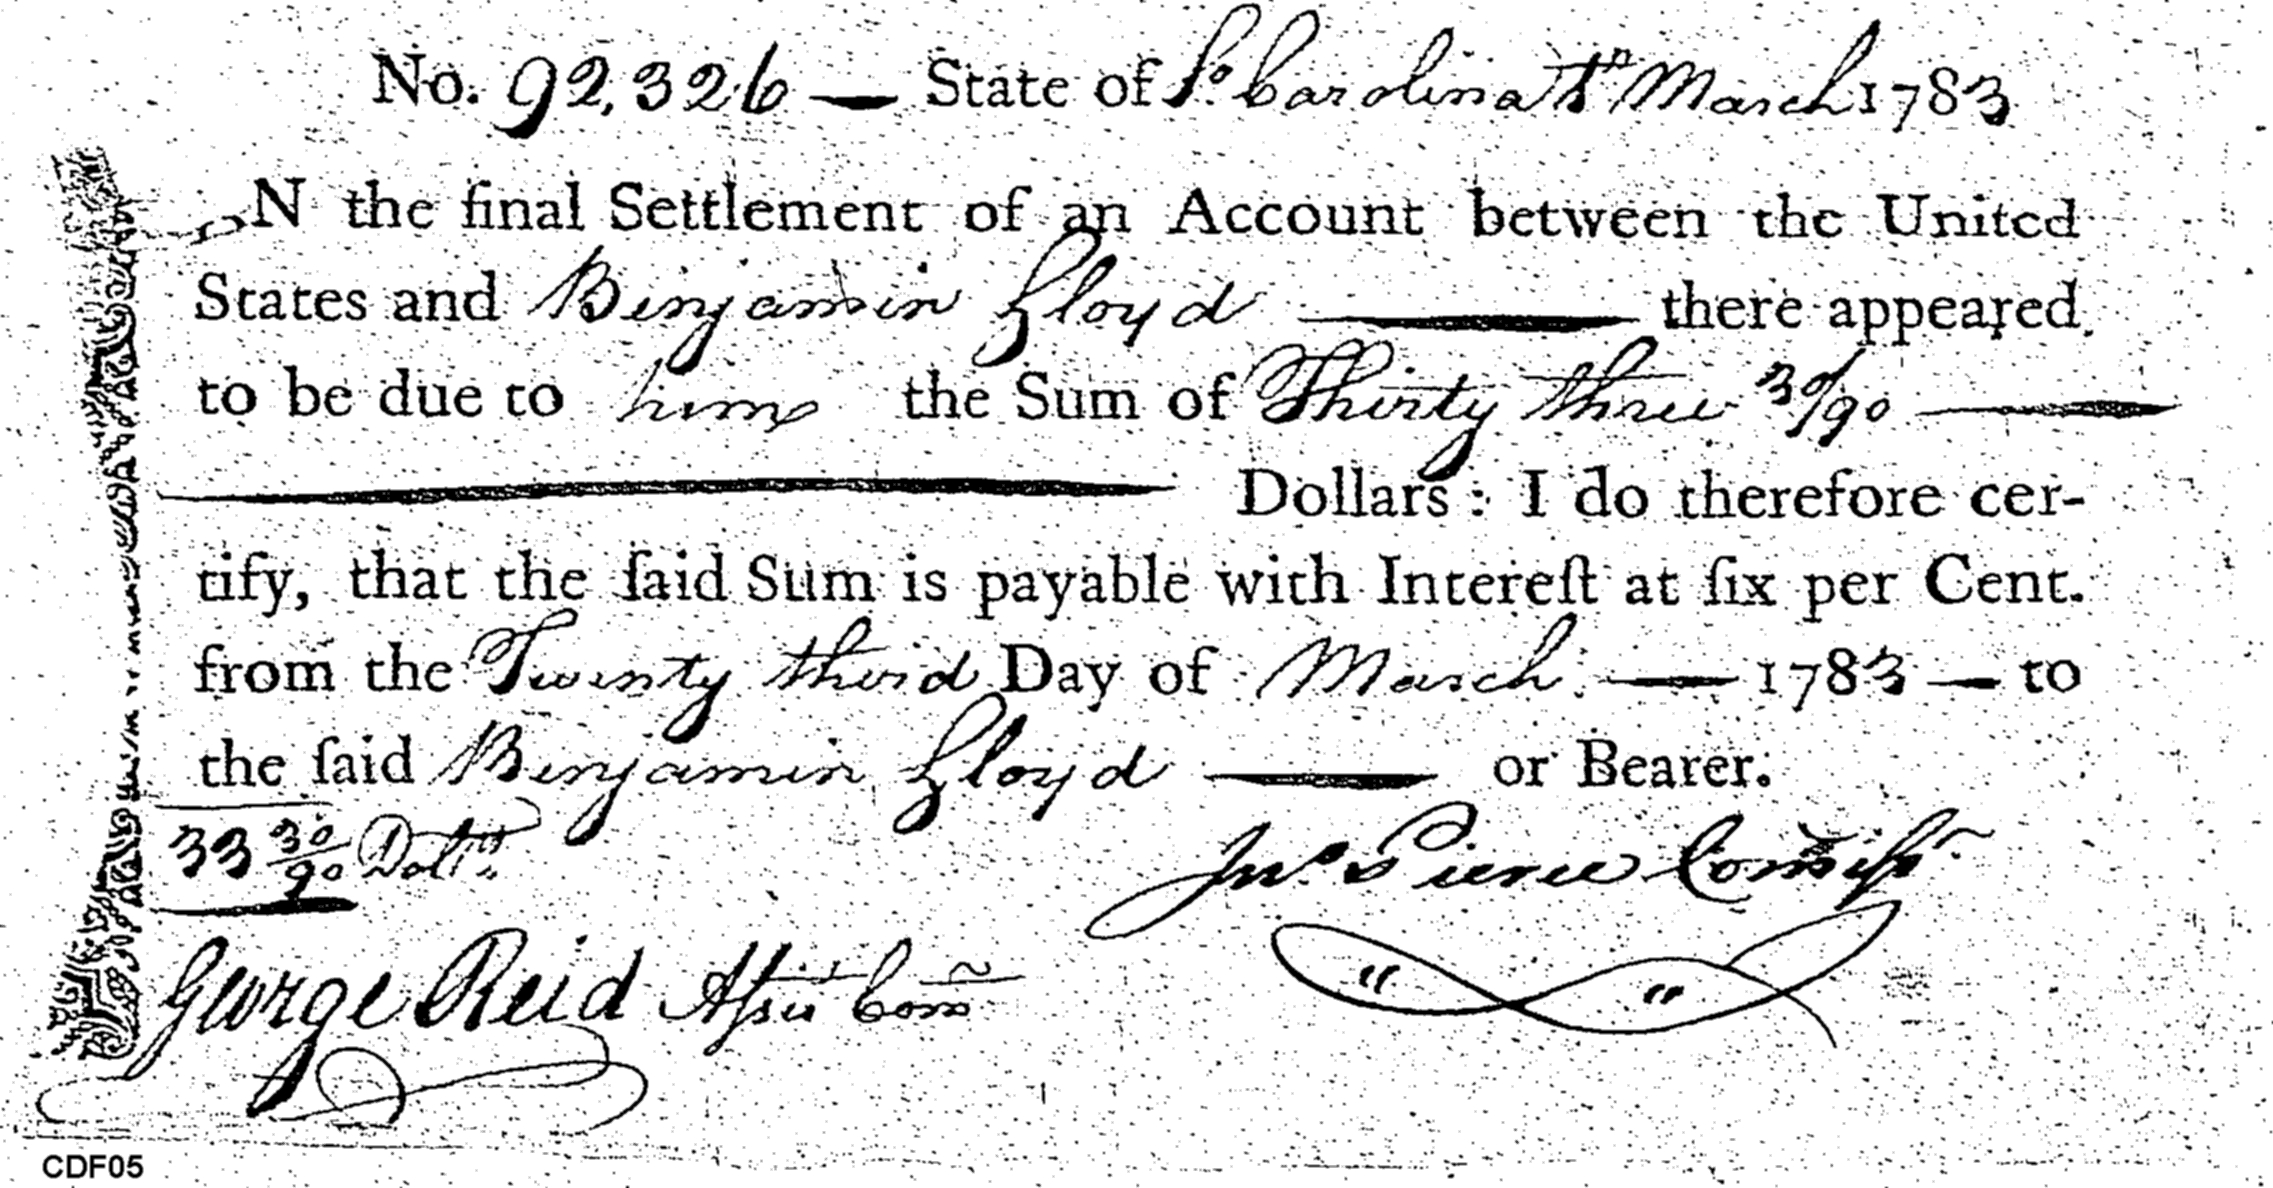 No. 92,326 — State of So. Carolina March 1783
N the final Settlement of an Account between the United
States and Benjamin Lloyd — there appeared
to be due to him the Sum of Thirty three 30/90 —
— Dollars: I do therefore cer-
tify, that the ſaid Sum is payable with Intereſt at ſix per Cent.
from the Twenty third Day of March — 1783 — to
the ſaid Benjamin Lloyd — or Bearer.
33 30/90 Dolls.
Jno. Pierce Commissr.
George Reid Assist Com
CDF05